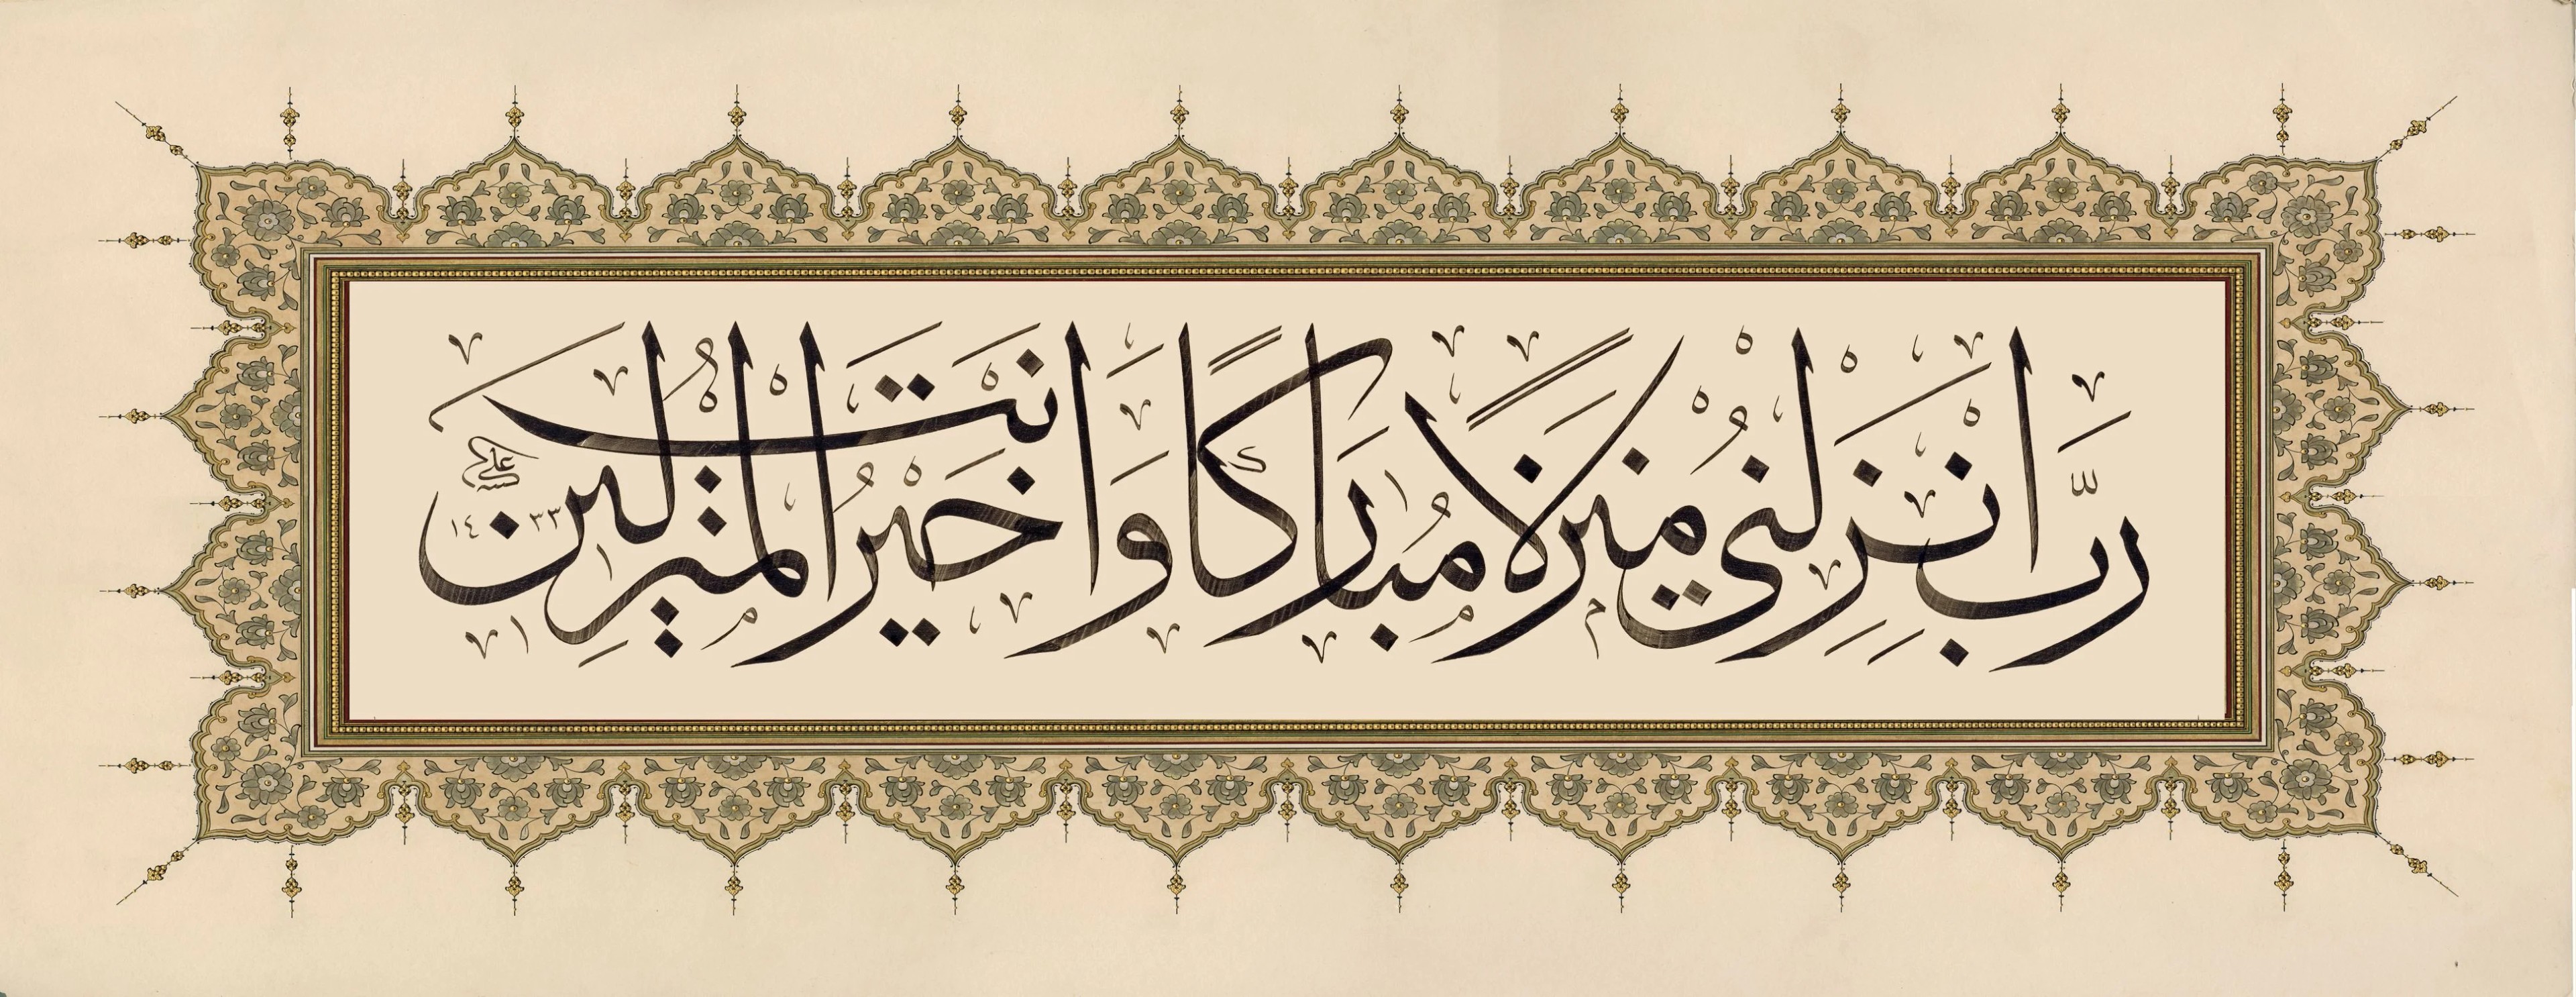 رَبِّ اَنْزِلْنِي مُنْزَلًا مُبَارَكًا وَاَنْتَ خَيْرُ الْمُنْزِلِينَ
علي
١٤٣٣